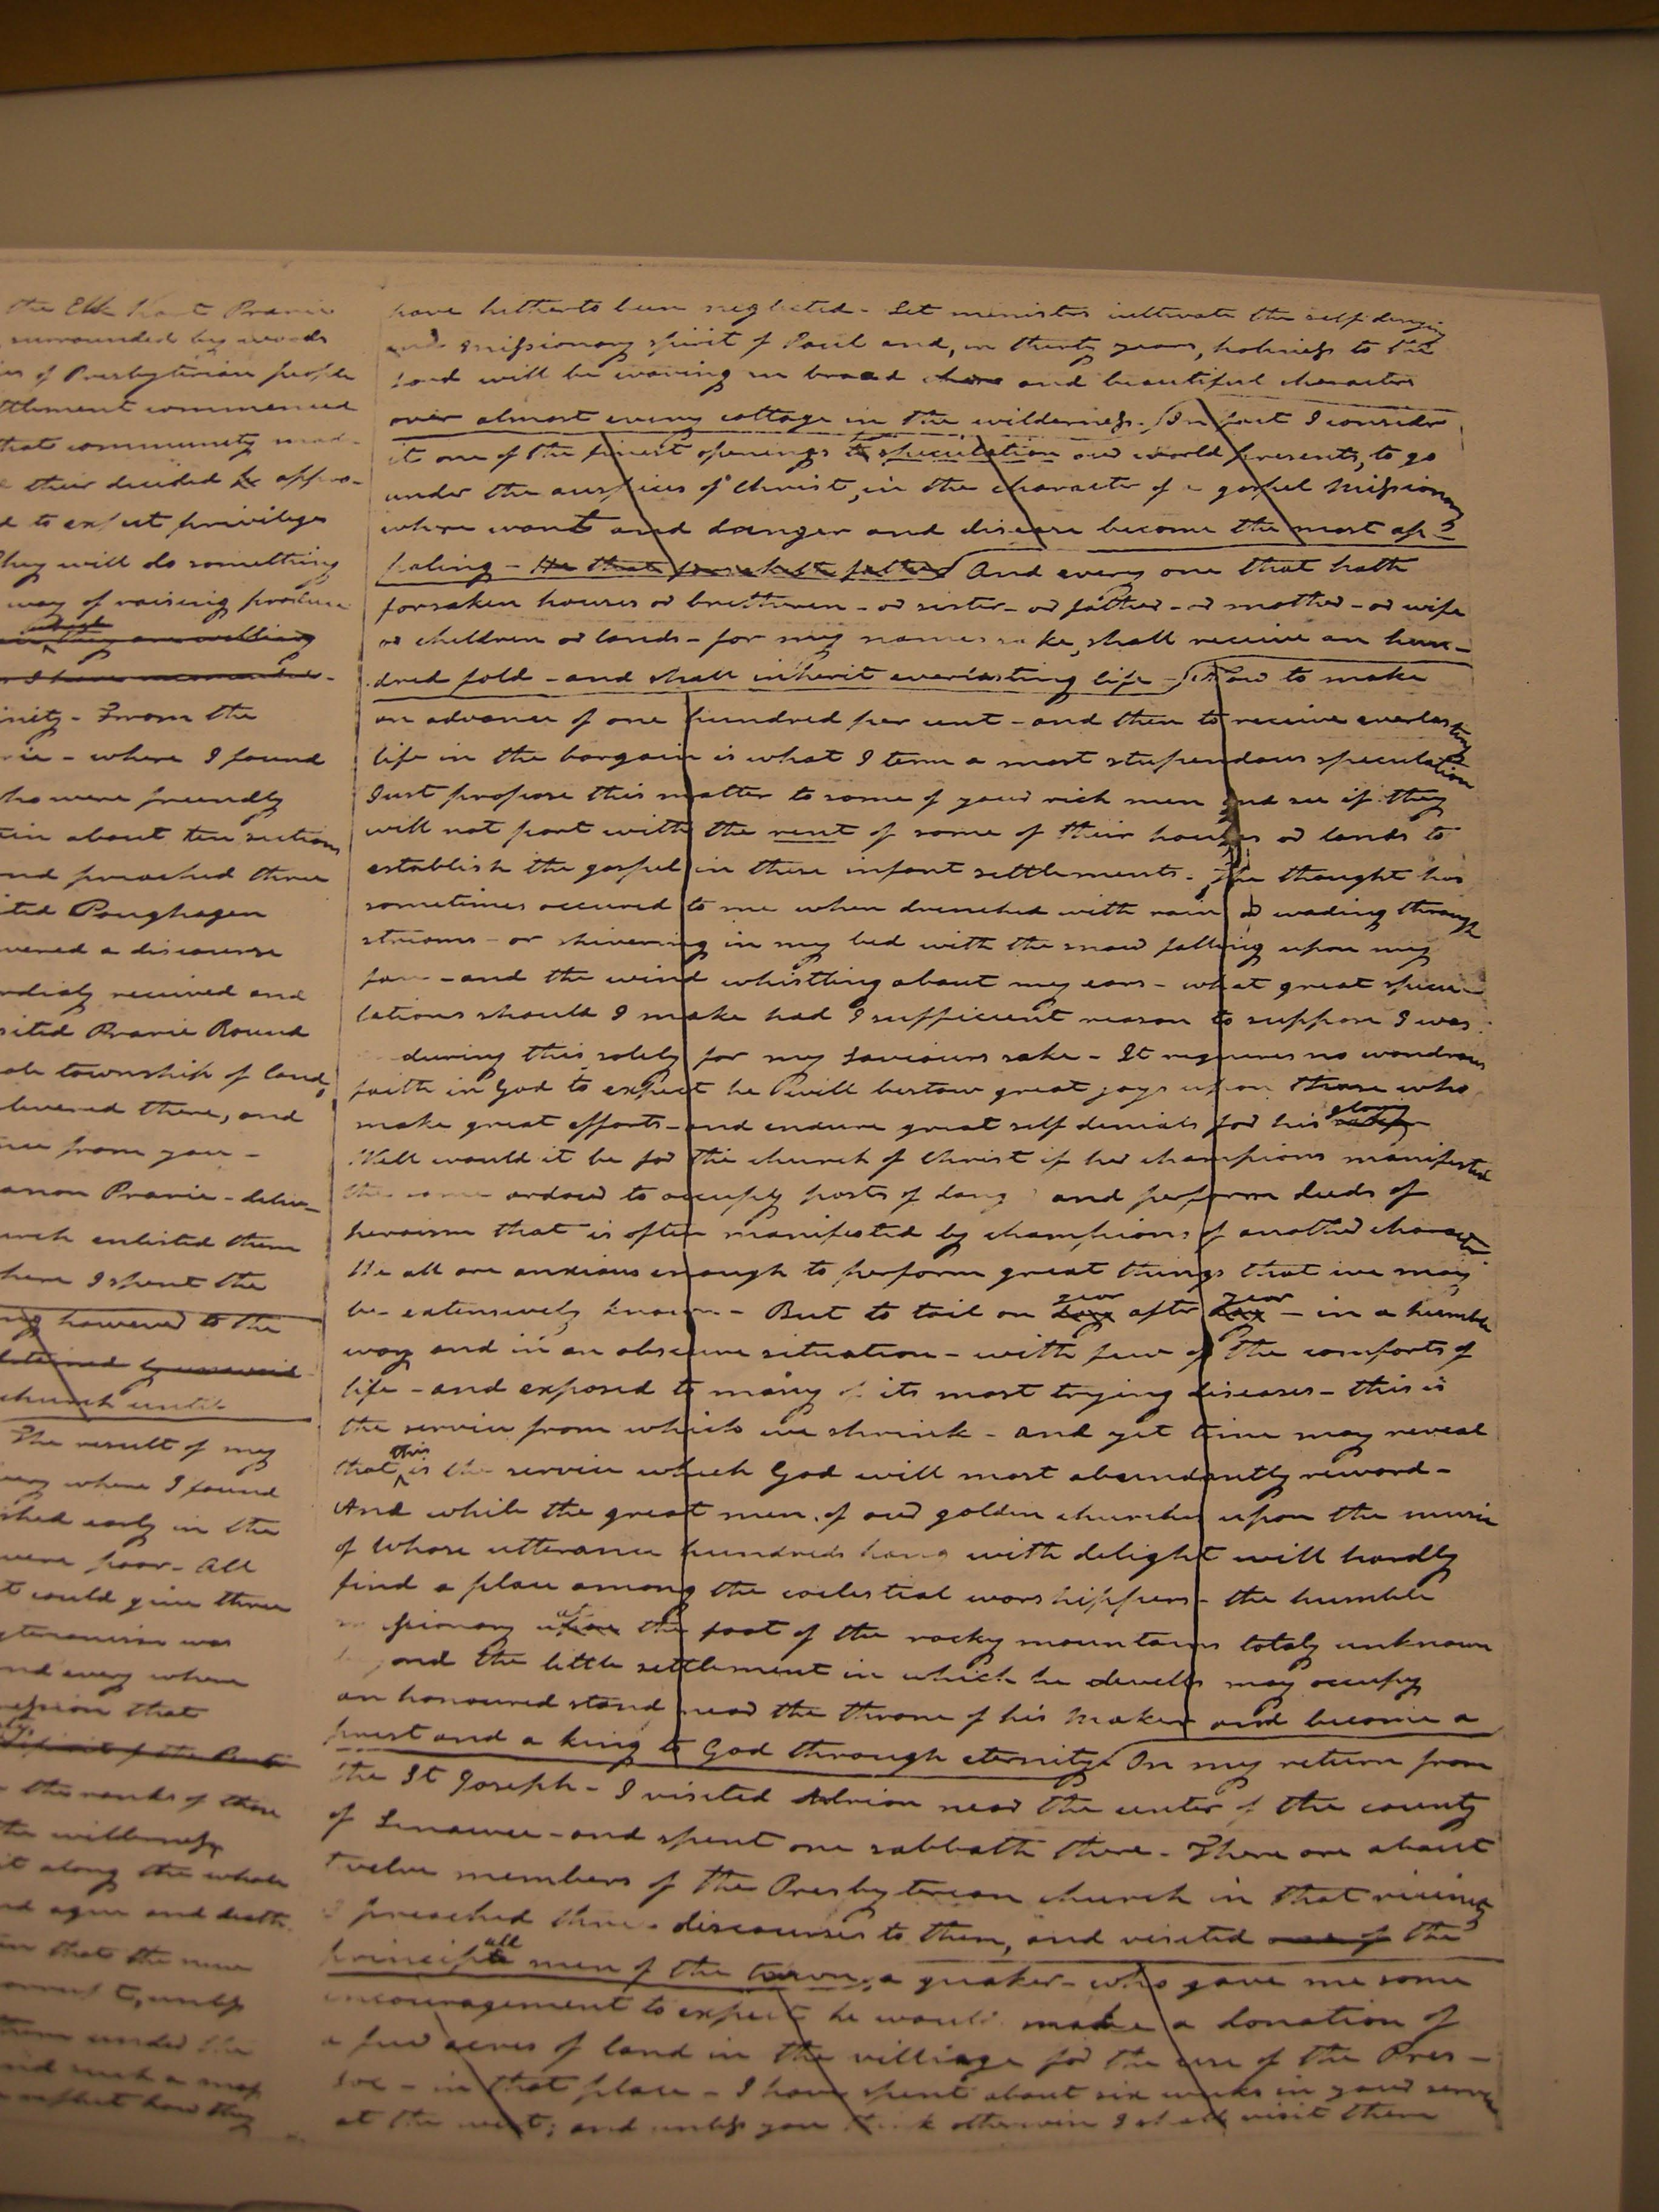 the Elk hart Prarie
surrounded by woods
of Presbyterian people
ttlement commenced
that community mad-
their decided be appro-
d to exfect privileges
they will do something
way of raising produce
they are willing
I have
inity - From the
rie - where I found
ho were friendly
tin about ten sections
nd preached three
ited Poughagen
vered a discourse
rdialy received and
sited Prarie Round
ole township of land,
livered there, and
from you -
Prarie - deliv-
urch enlisted them
here I spent the
however to the
by unavoid-
church until
The result of my
ery where I found
shed early in the
were poor - All
t could give three
yterianism was
nd every where
ression that
spirit of the
the ranks of those
the wilderness
it along the whole
nd ague and death.
in that the new
unless
them under the
nd such a map
reflect how they
have hitherto been neglected - Let ministers cultivate the self denying
and missionary spirit of Paul and, in thirty years, holiness to the
Lord will be waving in broad chara and beautiful characters
over almost every cottage in the wilderness. In fact I consider
it one of the finest openings to speculation our world presents, to go
under the auspices of Christ, in the character of a gospel Missionary
where want and danger and disease become the most ap-
paling - He that forsaketh father And every one that hath
forsaken houses or bretheren - or sister - or father - or mother - or wife
or children or lands - for my names sake, shall receive an hun-
dred fold - and shall inherit everlasting life - Now to make
an advance of one hundred per cent - and then to receive everlasting
life in the bargain is what I term a most stupendous speculation
Just propose this matter to some of your rich men and see if they
will not part with the rent of some of their houses or lands to
establish the gospel in these infant settlements. The thought has
sometimes occured to me when drenched with rain or wading through
streams - or shivering in my bed with the snow falling upon my
face - and the wind whistling about my ears - what great specu-
lations should I make had I sufficient reason to suppose I was
during this solely for my Saviours sake - It requires no wondrous
faith in God to expect he will bestow great joys upon those who
make great efforts - and endure great self denials for his glory
Well would it be for the church of Christ if her champions manifested
the same ardour to occupy posts of dang and perform deeds of
heroism that is often manifested by champions of another character
We all are anxious enough to perform great things that we may
be extensively known - But to toil on day year after day year - in a humble
way and in an obscure situation - with few of the comforts of
life - and exposed to many of its most trying diseases - this is
the service from which we shrink - and yet time may reveal
that this is the service which God will most abundantly reward -
And while the great men of our golden churches upon the music
of whose utterance hundreds hang with delight will hardly
find a place among the coelestial worshippers - the humble
missionary upon at the foot of the rocky mountains totaly unknown
beyond the little settlement in which he dwells may occupy
an honoured stand near the throne of his Maker and become a
priest and a king to God through eternity. On my return from
the St Joseph - I visited Adrian near the center of the county
of Lenawee - and spent one sabbath there - There are about
twelve members of the Presbyterian church in that vicinity
I preached three discourses to them, and visited one of the
principall men of the town, a quaker - who gave me some
encouragement to expect he would make a donation of
a few acres of land in the villiage for the use of the Pres-
Soc - in that place - I have spent about six weeks in your service
at the west; and unless you think otherwise I shall visit them